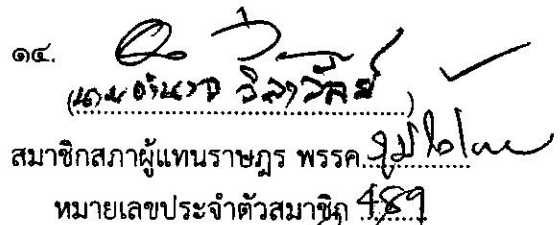 ๑๔.
(นายอำนาจ วิลาวัลย์)
สมาชิกสภาผู้แทนราษฎร พรรค ภูมิใจไทย
หมายเลขประจำตัวสมาชิก 489